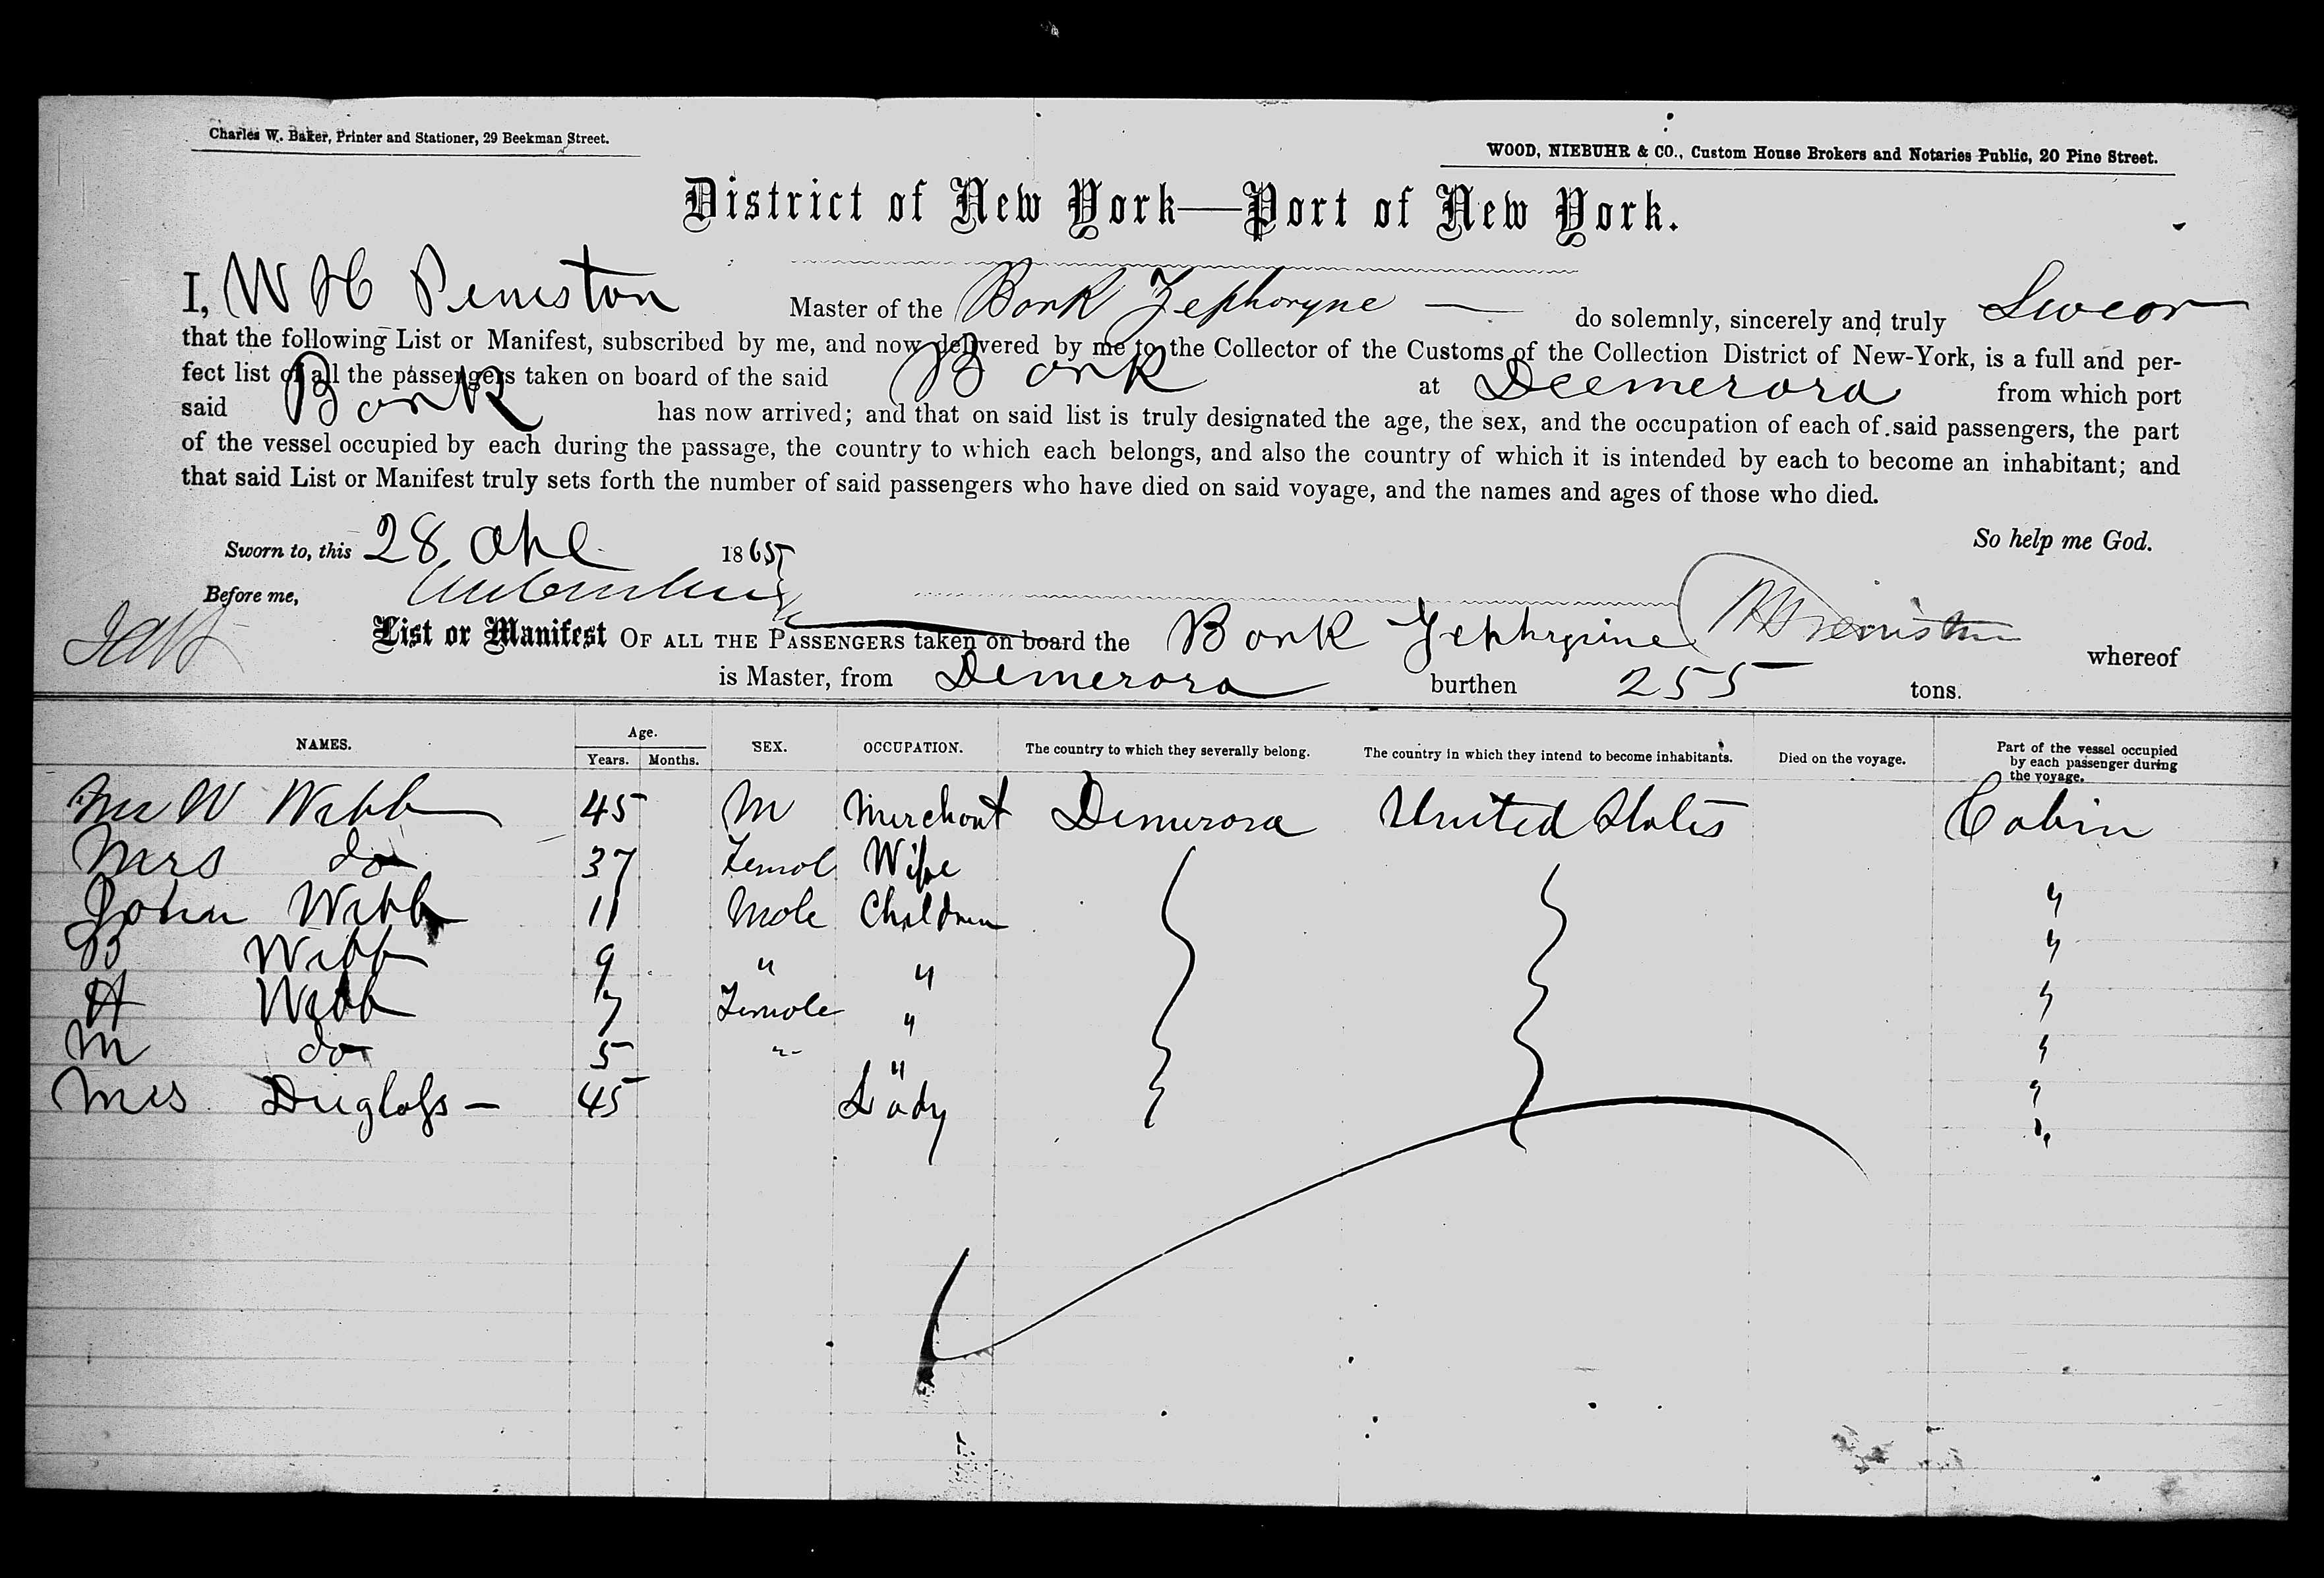 Charles W. Baker, Printer and Stationer, 29 Beekman Street.
WOOD, NIEBUHR & CO., Custom House Brokers and Notaries Public, 20 Pine Street.
District of New York—Port of New York.
I, W H Peniston Master of the Bark Zephoryne — do solemnly, sincerely and truly Swear
that the following List or Manifest, subscribed by me, and now delivered by me to the Collector of the Customs of the Collection District of New-York, is a full and per-
fect list of all the passengers taken on board of the said Bark at Deemerara from which port
said Bark has now arrived; and that on said list is truly designated the age, the sex, and the occupation of each of said passengers, the part
of the vessel occupied by each during the passage, the country to which each belongs, and also the country of which it is intended by each to become an inhabitant; and
that said List or Manifest truly sets forth the number of said passengers who have died on said voyage, and the names and ages of those who died.
Sworn to, this 28 Apl 1865 So help me God.
Before me,
List or Manifest OF ALL THE PASSENGERS taken on board the Bark Zephyrine W H Peniston whereof
is Master, from Demerara burthen 255 tons.
NAMES. Age. Years. Months. SEX. OCCUPATION. The country to which they severally belong. The country in which they intend to become inhabitants. Died on the voyage. Part of the vessel occupied by each passenger during the voyage.
Mr W Webb 45 M Merchant Demerara United States Cabin
Mrs do 37 Femal Wife
John Webb 11 Male Children "
B Webb 9 " " "
H Webb 7 Female " "
M do 5 " " "
Mrs Duglass — 45 Lady "
"